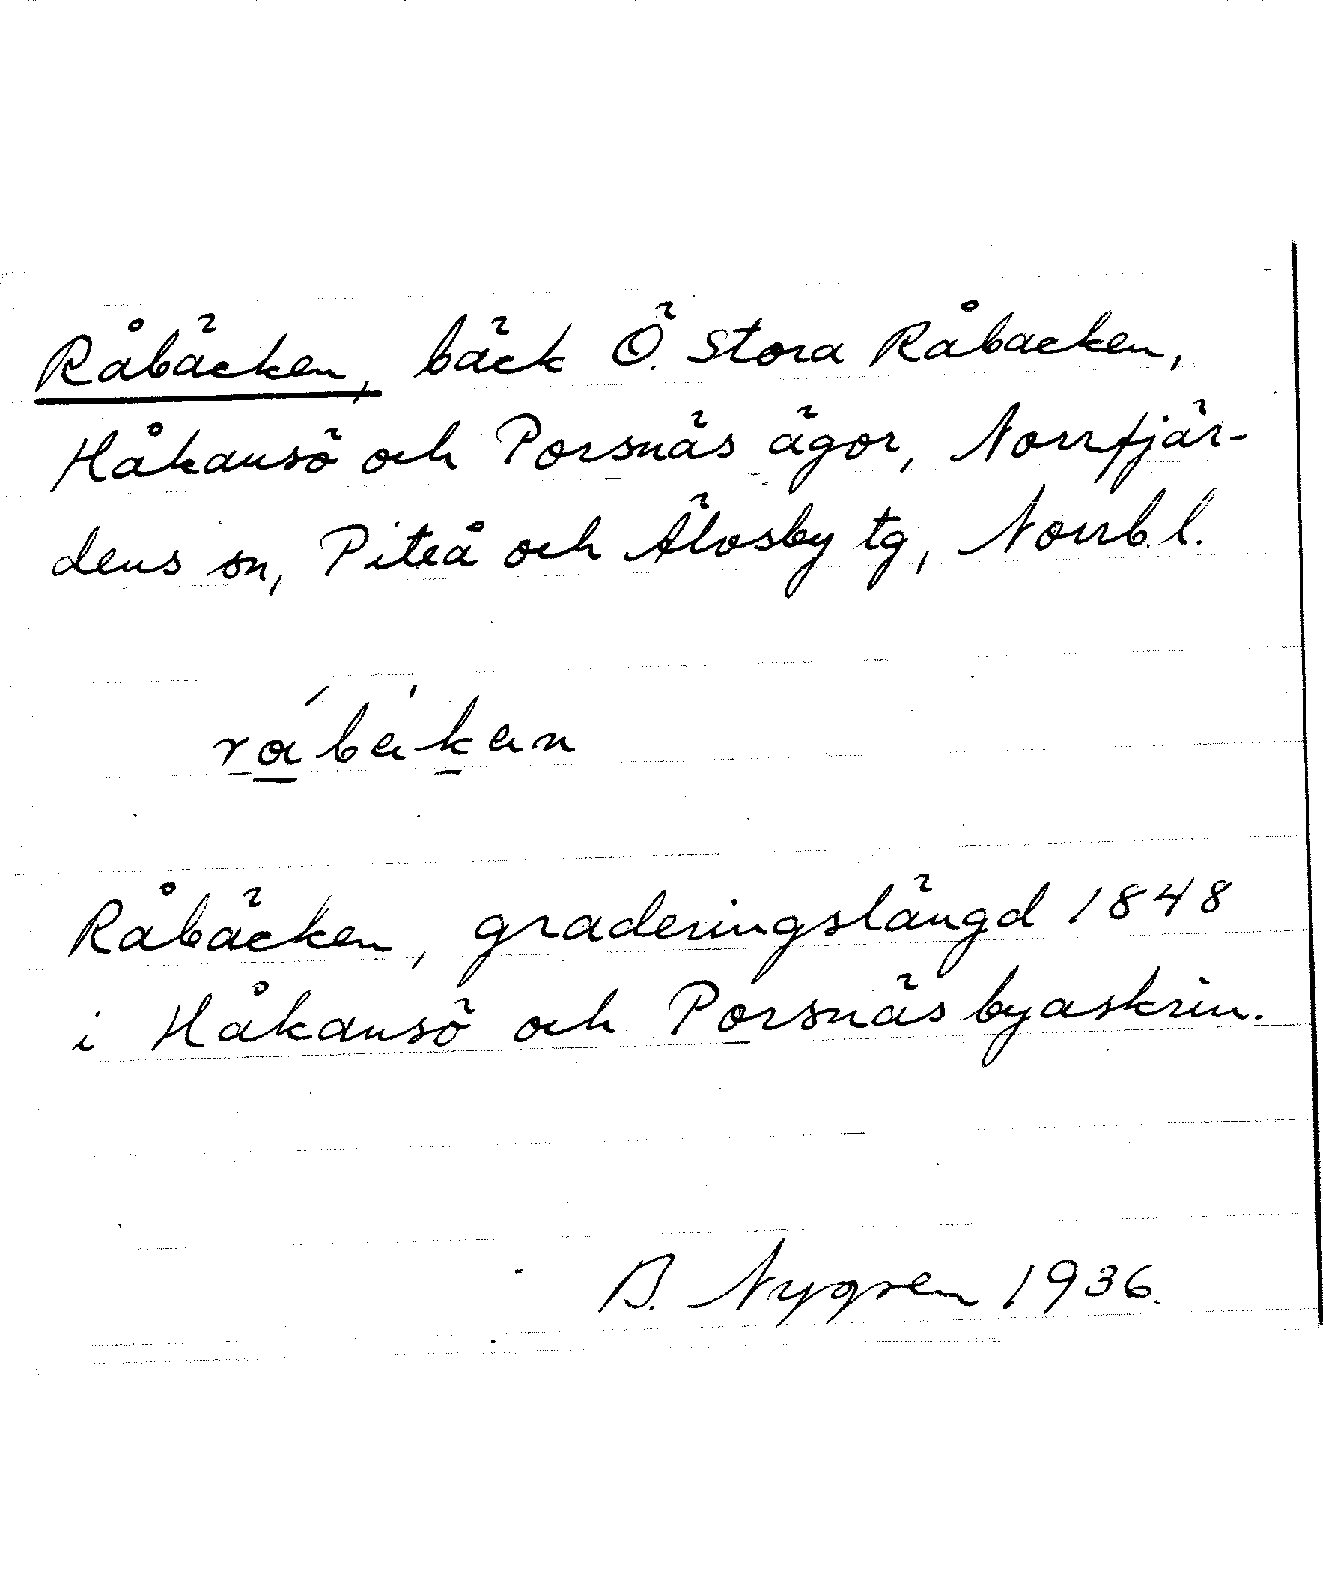 Råbäcken, bäck Ö. Stora Råbacken,
Håkansö och Porsnäs ägor, Norrfjär-
dens sn, Piteå och Älvsby tg, Norrb. l.
Råbäcken, graderingslängd 1848
i Håkansö och Porsnäs byaskrin.
B. Nygren 1936.